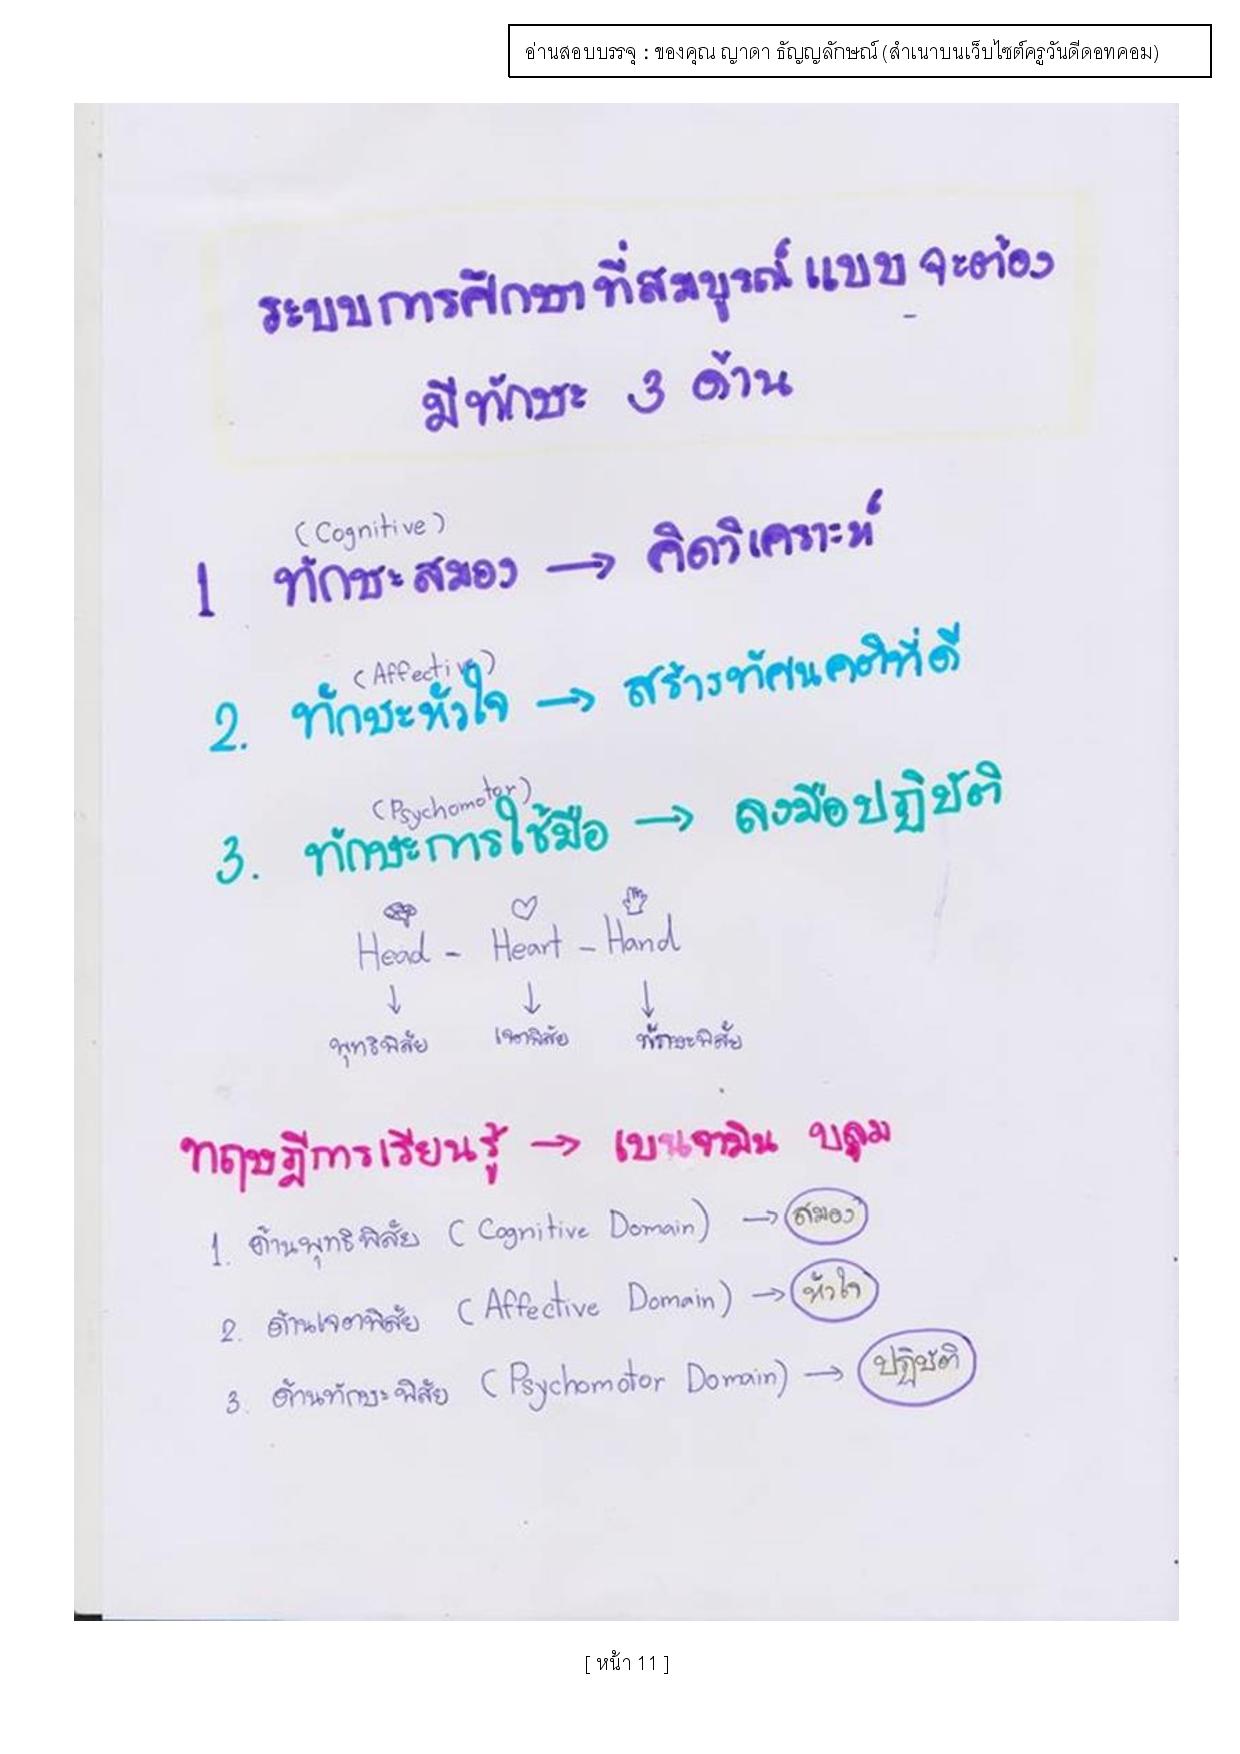 อ่านสอบบรรจุ : ของคุณ ญาดา ธัญญลักษณ์ (สำเนาบนเว็บไซต์ครูวันดีดอทคอม)
ระบบการศึกษาที่สมบูรณ์แบบ จะต้อง
มีทักษะ 3 ด้าน
(Cognitive)
1 ทักษะสมอง → คิดวิเคราะห์
(Affective)
2. ทักษะหัวใจ → สร้างทัศนคติที่ดี
(Psychomotor)
3. ทักษะการใช้มือ → ลงมือปฏิบัติ
Head - Heart - Hand
↓ ↓ ↓
พุทธิพิสัย เจตพิสัย ทักษะพิสัย
ทฤษฎีการเรียนรู้ → เบนจามิน บลูม
1. ด้านพุทธิพิสัย (Cognitive Domain) → สมอง
2. ด้านเจตพิสัย (Affective Domain) → หัวใจ
3. ด้านทักษะพิสัย (Psychomotor Domain) → ปฏิบัติ
[ หน้า 11 ]